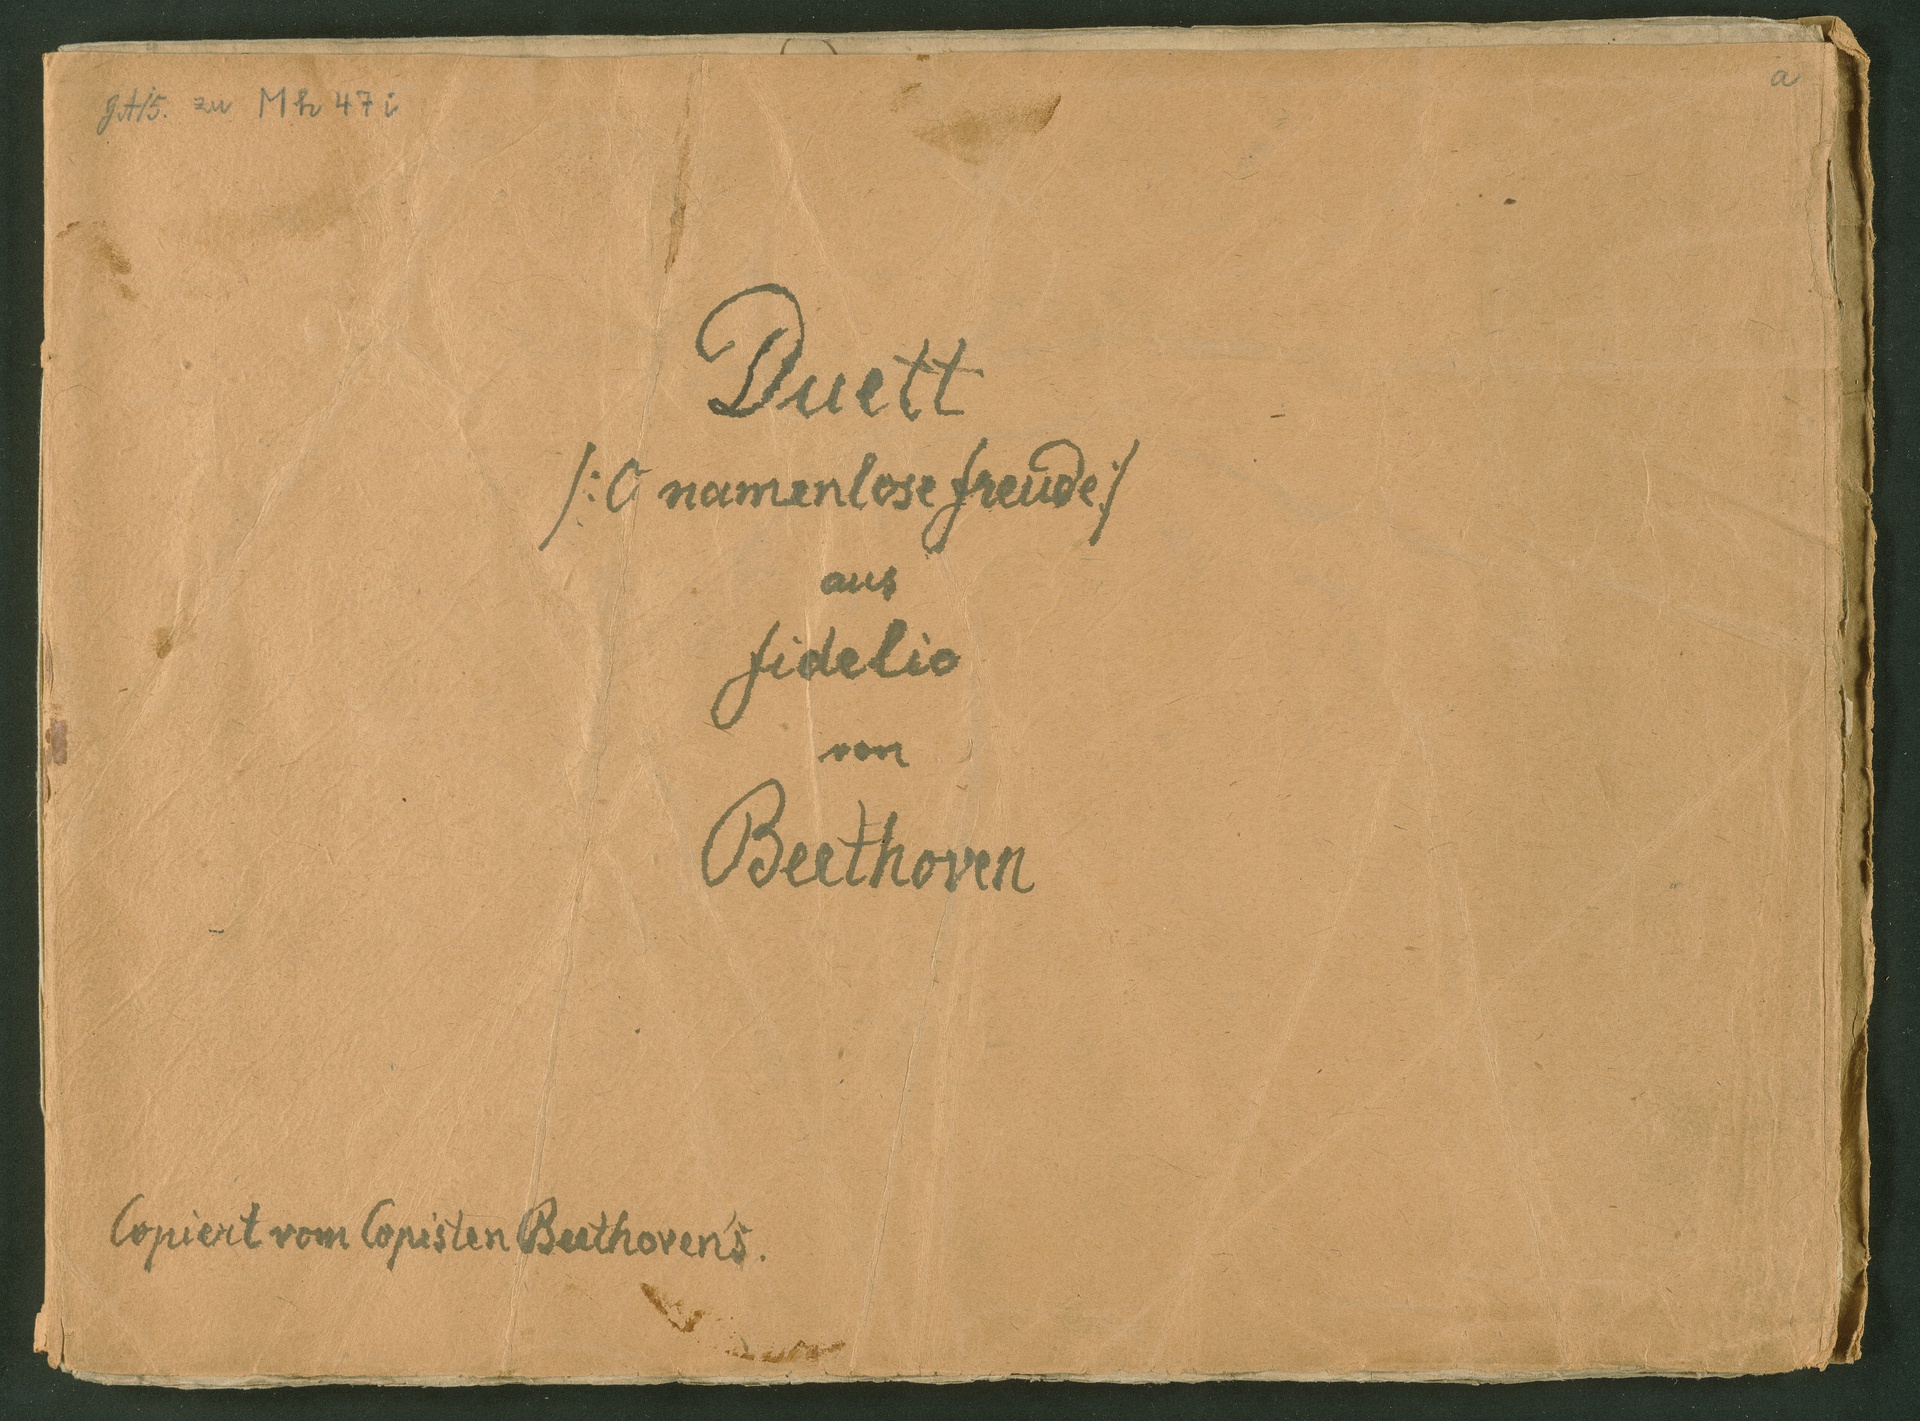 zu Mh 47 i
a
Duett
/: O namenlose freude :/
aus
fidelio
von
Beethoven
Copiert vom Copisten Beethoven's.